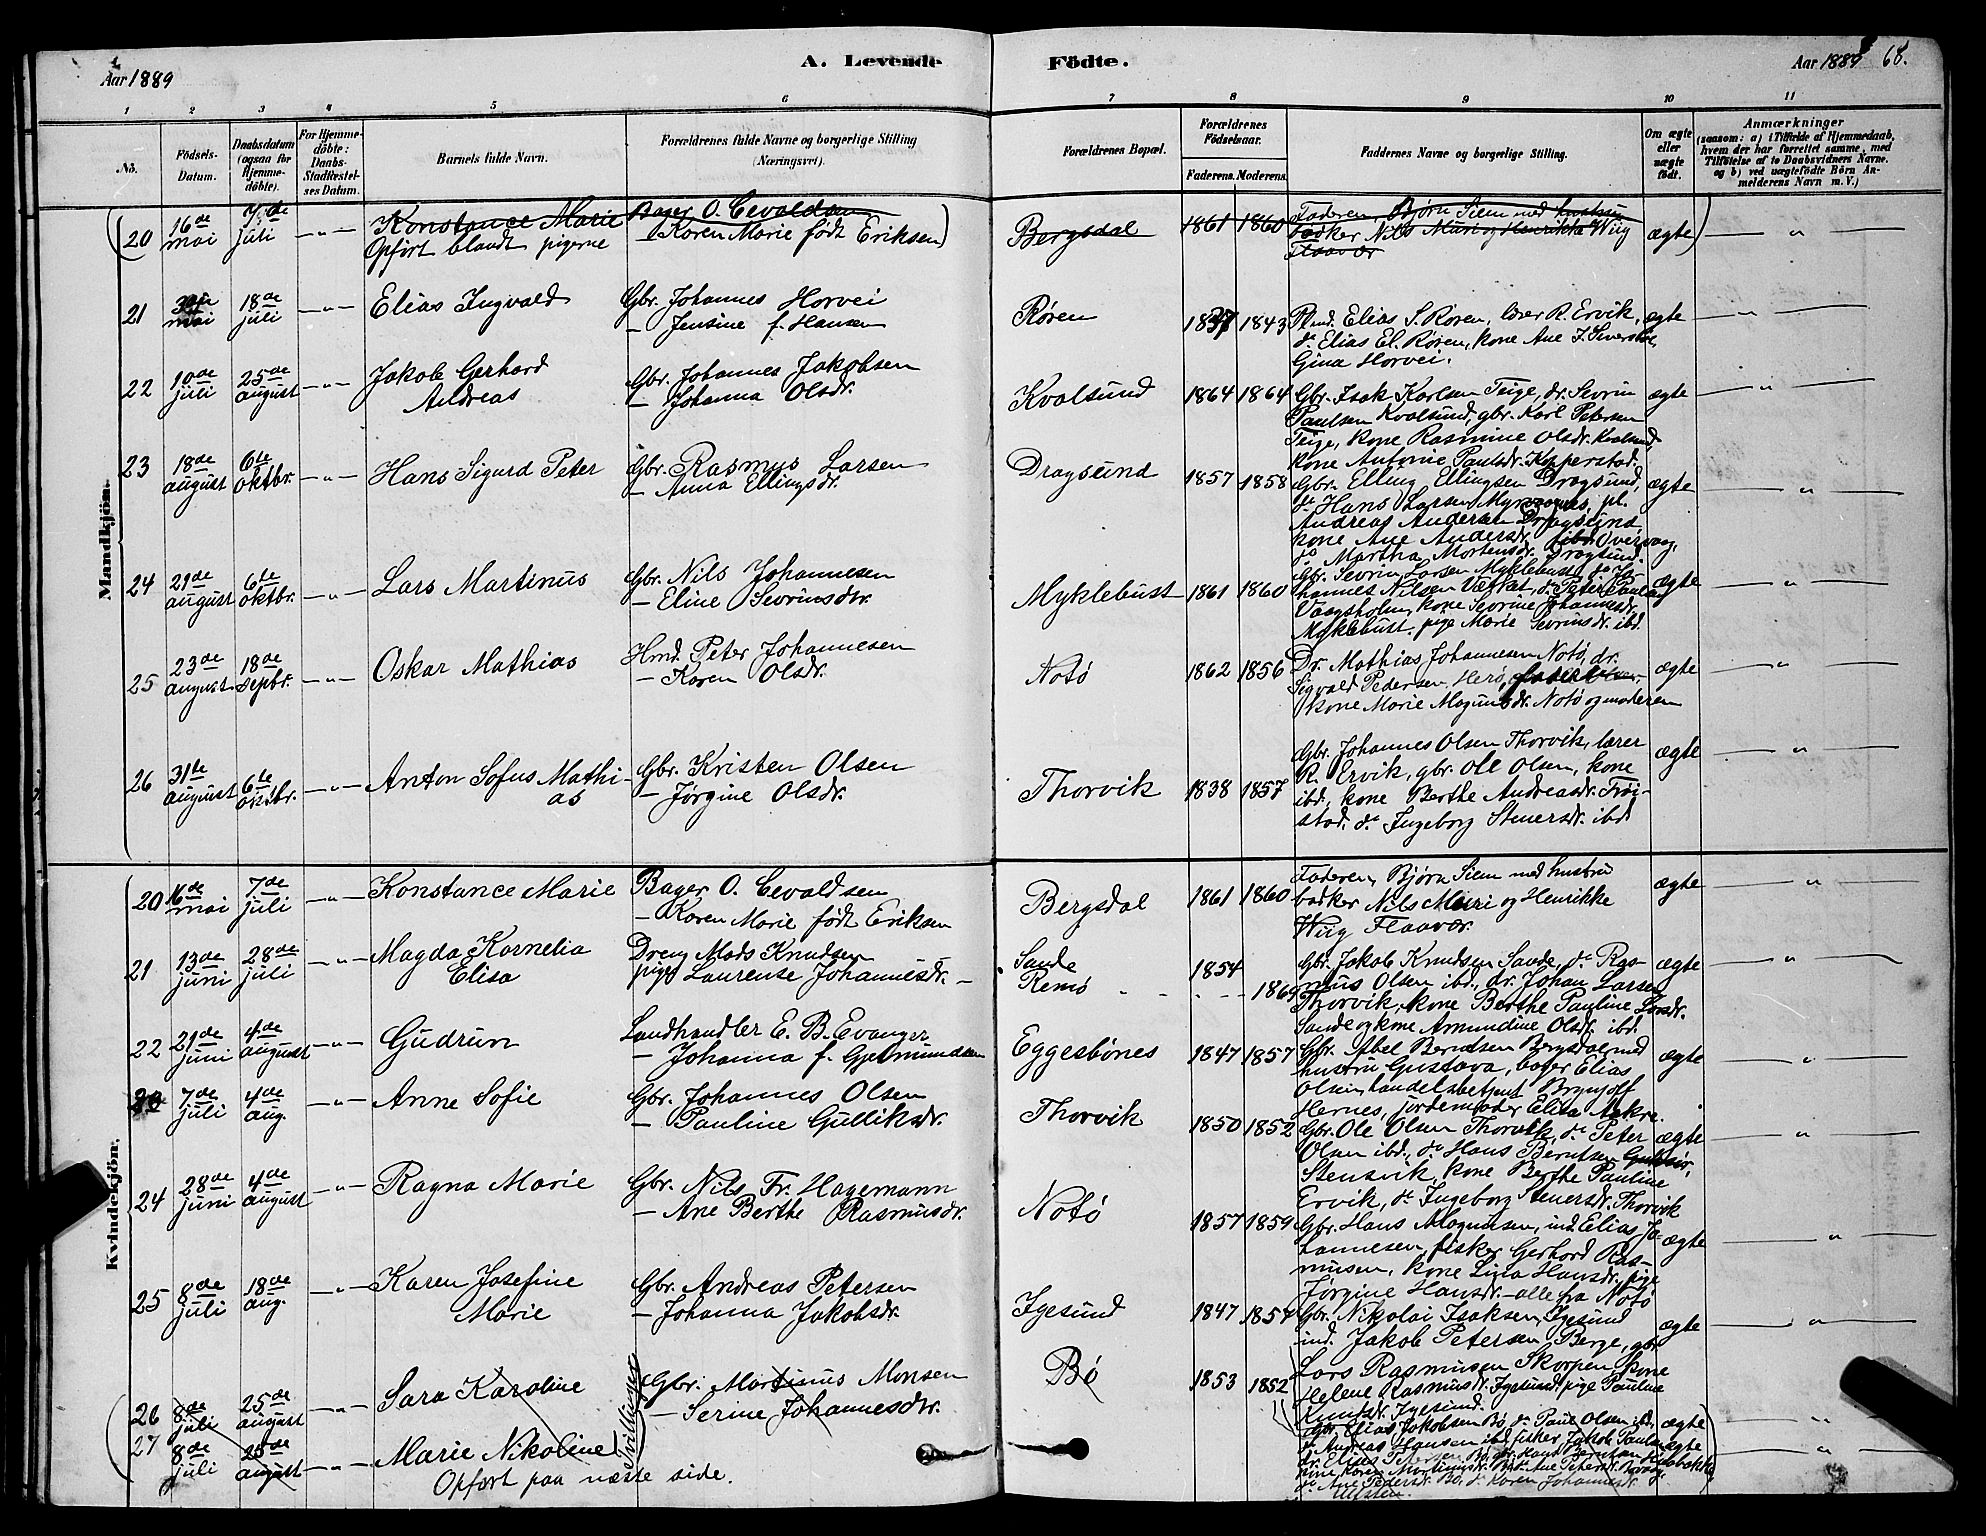 Aar 1889
A. Levende
Födte.
Aar 1889 68.
1 2 3 4 5 6 7 8 9 10 11
No.
Födsels-Datum.
Daabsdatum (ogsaa for Hjemme-döbte).
For Hjemme-döbte: Daabs-Stadfæstel-ses Datum.
Barnets fulde Navn.
Forældrenes fulde Navne og borgerlige Stilling (Næringsvei).
Forældrenes Bopæl.
Forældrenes Födselsaar.
Faderens. Moderens.
Faddernes Navne og borgerlige Stilling.
Om ægte eller uægte födt.
Anmærkninger
(saasom: a) i Tilfælde af Hjemmedaab, hvem der har forrettet samme, med Tilföielse af to Daabsvidners Navne, og b) ved uægtefödte Börn An-melderens Navn m. V.)
Mandkjön.
20 16de mai 7de juli Konstance Marie Bager O. Cevaldsen Bergsdal 1861 1860 Faderen, Bjørn Siem med hustru ægte
Opført blandt pigerne – Karen Marie født Eriksen badker Nils Muri og Henrikka Wiig
Flaavær
21 mai 18de juli Elias Ingvald Gbr. Johannes Horvei Røren 1837 1843 Elias S. Røren, lærer R. Ervik, ægte
– Jensine f. Hansen do Elias El. Røren, kone Ane J.
Gina Horvei.
22 10de juli 25de august Jakob Gerhard Gbr. Johannes Jakobsen Kvalsund 1864 1864 Gbr. Isak Karlsen Teige, dr. Sevrin ægte
Andreas – Johanna Olsdr. Paulsen Kvalsund, gbr. Karl Petersen
Teige, kone Rasmine Olsdr. Kvalsund
kone Antonie Paulsdr. Kopperstad.
23 18de august 6te oktbr. Hans Sigurd Peter Gbr. Rasmus Larsen Dragsund 1857 1858 Gbr. Elling Ellingsen Dragsund, ægte
– Anna Ellingsdr. do Hans Larsen Myrvaagnes, pl.
Andreas Andersen Dragsund
kone Ane Andersdr. Overvaag,
do Martha Mortensdr. Dragsund.
24 29de august 6te oktbr. Lars Martinus Gbr. Nils Johannesen Myklebust 1861 1860 Gbr. Sevrin Larsen Myklebust, do Jo- ægte
– Eline Sevrinsdr. hannes Nilsen do Peter Paulsen
Vaagsholm, kone Sevrine Johannesdr.
Myklebust, pige Marie Sevrinsdr. ibd.
25 23de august 18de septbr. Oskar Mathias Hmd. Peter Johannesen Notö 1862 1856 Dr. Mathias Johannesen Notö, dr. ægte
– Karen Olsdr. Sigvald Pedersen Herö,
kone Marie Magnusdr. Notö og moderen
26 31te august 6te oktbr. Anton Sofus Mathi- Gbr. Kristen Olsen Thorvik 1838 1857 Gbr. Johannes Olsen Thorvik, lærer ægte
as – Jørgine Olsdr. R. Ervik, gbr. Ole Olsen, kone
ibd., kone Berthe Andreasdr. Frøi-
stad, do Ingeborg Steuersdr. ibd
Kvindekjön.
20 16de mai 7de juli Konstance Marie Bager O. Cevaldsen Bergsdal 1861 1860 Faderen, Bjørn Siem med hustru ægte
– Karen Marie født Eriksen badker Nils Muri og Henrikke
Wiig Flaavær.
21 13de juni 28de juli Magda Kornelia Dreng Mads Knudsen Sande 1854 Gbr. Jakob Knudsen Sande, do Ras- ægte
Elisa pige Laurense Johannesdr. Remö 1869 mus Olsen ibd., dr. Johan Larsen
Thorvik, kone Berthe Pauline Larsdr.
Sande og kone Amundine Olsdr. ibd.
22 21de juni 4de august Gudrun Landhandler E. B. Evanger Eggesbönes 1847 1857 Gbr. Abel Berntsen Bergsdal med ægte
– Johanna f. Gjelmundsen hustru Gustava, bager Elias
Olsen, handelsbetjent Brynjolf
Hernes, jordemoder Elisa Aakre.
23 7de juli 4de aug. Anne Sofie Gbr. Johannes Olsen Thorvik 1850 1852 Gbr. Ole Olsen Thorvik, do Peter ægte
– Pauline Gulliksdr. Olsen ibd., do Hans Berntsen
Stensvik, kone Berthe Pauline
Ervik, do Ingeborg Steuersdr. Thorvik
24 28de juni 4de august Ragna Marie Gbr. Nils Fr. Hagemann Notö 1857 1859 Gbr. Hans Magnusen, ind. Elias Jo- ægte
– Ane Berthe Rasmusdr. hannesen, fisker Gerhard Ras-
musen, kone Lina Hansdr. pige
Jørgine Hansdr. – alle fra Notö
25 8de juli 18de aug. Karen Josefine Gbr. Andreas Petersen Igesund 1847 1857 Gbr. Nikolai Isaksen Igesund ægte
Marie – Johanna Jakobsdr. ind. Jakob Petersen Berge, gbr.
Lars Rasmusen Skorpen, kone
Helene Rasmusdr. Igesund, pige Pauline
Knudsdr. Igesund.
26 8de juli 25de august Sara Karoline Tvillinger Gbr. Martinus Monsen Bö 1853 1852 Gbr. Elias Jakobsen Bö, do Paul Olsen ibd. ægte
27 8de juli 25de august Marie Nikoline – Serine Johannesdr. do Andreas Hansen ibd. fisker Jakob Paulsen ægte
Opført paa næste side.